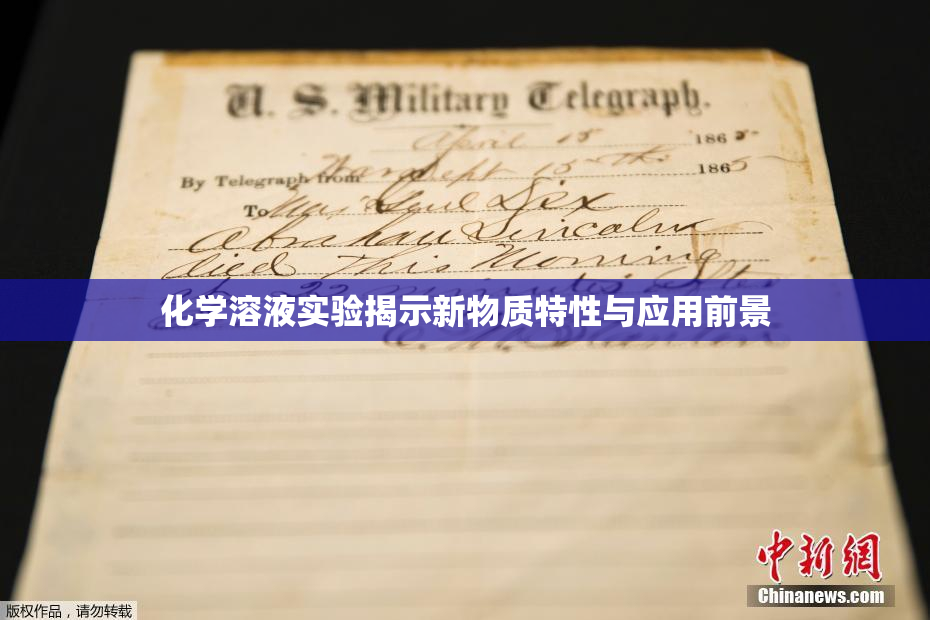 U. S. Military Telegraph.
April 15 1865
By Telegraph from War Dept 15th 1865
To Maj Genl Dix
Abraham Lincoln
died This Morning
at 22 minutes after
化学溶液实验揭示新物质特性与应用前景
E. M. Stanton
中新網
Chinanews.com
版权作品，请勿转载